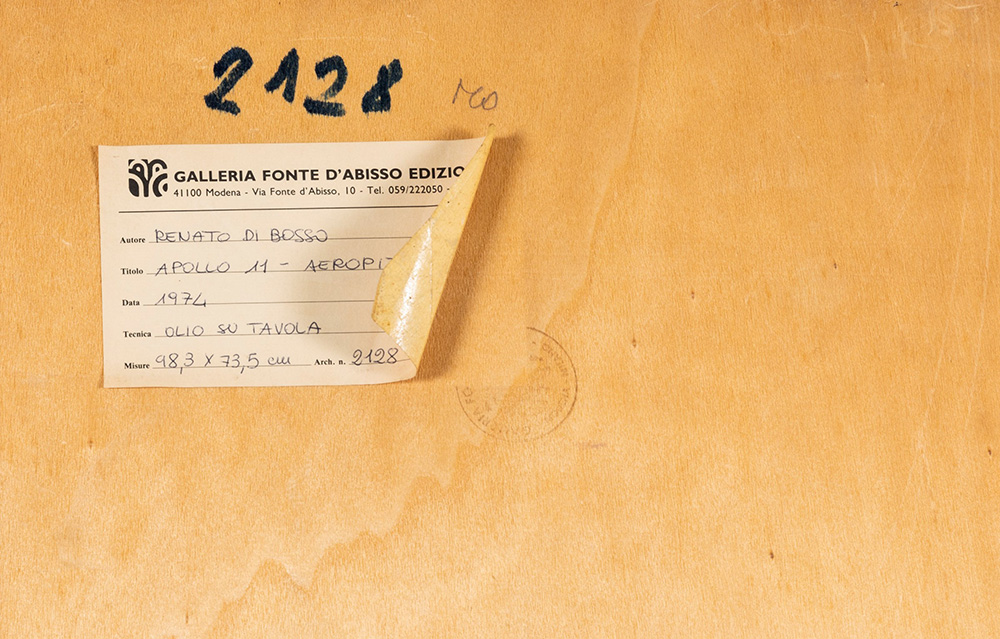 2128
GALLERIA FONTE D'ABISSO EDIZIO
41100 Modena - Via Fonte d'Abisso, 10 - Tel. 059/222050 -
Autore RENATO DI BOSSO
Titolo APOLLO 11 - AEROPIT
Data 1974
Tecnica OLIO SU TAVOLA
Misure 98,3 x 73,5 cm Arch. n. 2128